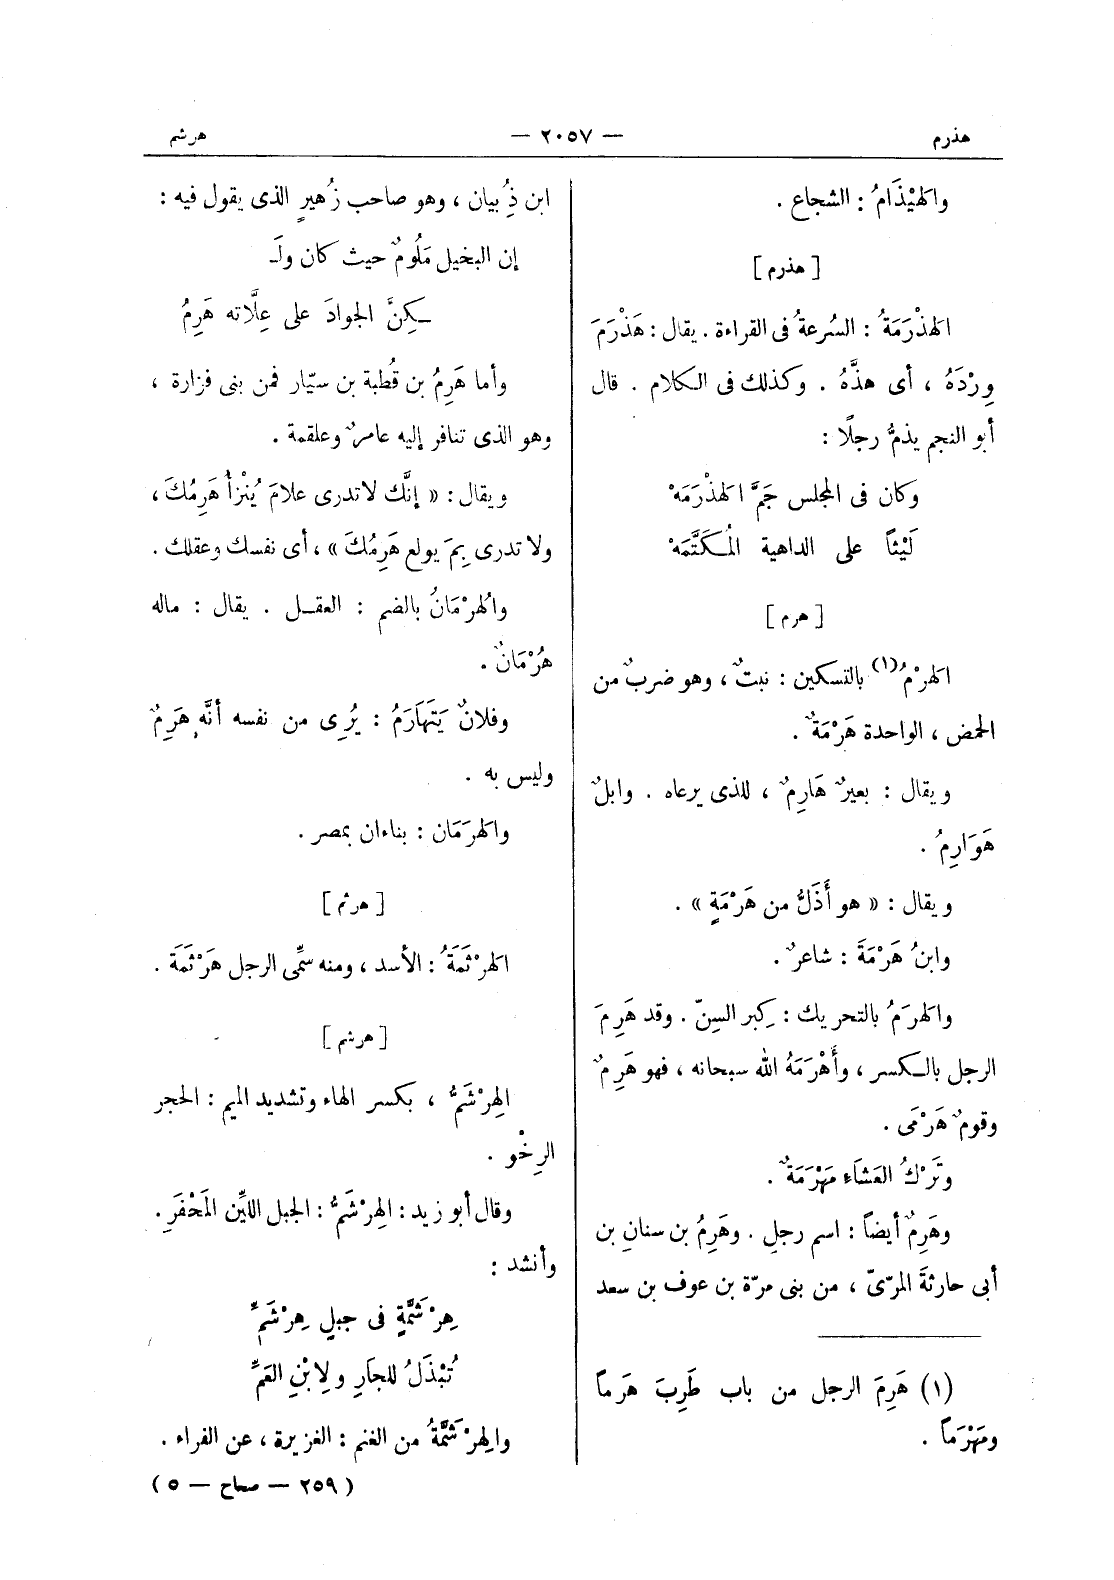 هذرم — ٢٠٥٧ — هرشم
والهَيْذَامُ : الشجاع .
[ هذرم ]
الهَذْرَمَةُ : السُرعةُ فى القراءة . يقال : هَذْرَمَ
وِرْدَهُ ، أى هذَّهُ . وكذلك فى الكلام . قال
أبو النجم يذمُّ رجلًا :
وكان فى المجلس جَمَّ الهَذْرَمَهْ
لَيْثاً على الداهية المُكَتَّمَهْ
[ هرم ]
الهَرْمُ (١) بالتسكين : نبتٌ ، وهو ضربٌ من
الحمض ، الواحدة هَرْمَةٌ .
ويقال : بعيرٌ هَارِمٌ ، للذى يرعاه . وابلٌ
هَوَارِمُ .
ويقال : « هو أَذَلُّ من هَرْمَةٍ » .
وابنُ هَرْمَةَ : شاعرٌ .
والهَرَمُ بالتحريك : كِبر السِنّ . وقد هَرِمَ
الرجل بالكسر ، وأَهْرَمَهُ الله سبحانه ، فهو هَرِمٌ
وقومٌ هَرْمَى .
وتَرْكُ العَشَاءِ مَهْرَمَةٌ .
وهَرِمٌ أيضاً : اسم رجلٍ . وهَرِمُ بن سنانِ بن
أبى حارثةَ المرّىّ ، من بنى مرّة بن عوف بن سعد
(١) هَرِمَ الرجل من باب طَرِبَ هَرَماً
ومَهْرَماً .
ابن ذُِبيان ، وهو صاحب زُهيرٍ الذى يقول فيه :
إن البخيل مَلُومٌ حيث كان ولـ
ـكِنَّ الجوادَ على عِلَّاته هَرِمُ
وأما هَرِمُ بن قُطبة بن سيّار فمن بنى فزارة ،
وهو الذى تنافر إليه عامرٌ وعلقمة .
ويقال : « إنَّك لا تدرى علامَ يُنْزأُ هَرِمُكَ ،
ولا تدرى بِمَ يولع هَرِمُكَ » ، أى نفسك وعقلك .
والهُرْمَانُ بالضم : العقـل . يقال : ماله
هُرْمَانٌ .
وفلانٌ يَتَهَارَمُ : يُرِى من نفسه أنَّه هَرِمٌ
وليس به .
والهَرَمَان : بناءان بمصر .
[ هرثم ]
الهَرْثَمَةُ : الأسد ، ومنه سمِّى الرجل هَرْثَمَة .
[ هرشم ]
الهِرْشَمُّ ، بكسر الهاء وتشديد الميم : الحجر
الرِخْو .
وقال أبو زيد : الهِرْشَمُّ : الجبل الليِّن المَحْفَرِ .
وأنشد :
هِرْشَمَّةٍ فى جبلٍ هِرْشَمِّ
تُبْذَلُ للجَارِ ولِابْنِ العَمِّ
والهِرْشَمَّةُ من الغنم : الغزيرة ، عن الفراء .
( ٢٥٩ — صحاح — ٥ )